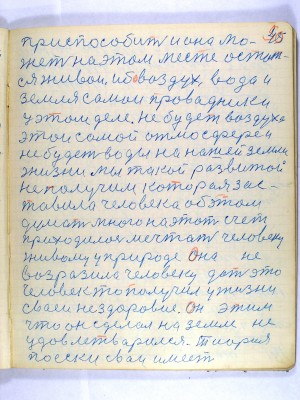 45
приспособить и она мо-
жет на этом месте остат
ся живой, ибо воздух, вода и
земля самои провадники
у этом деле. не будет воздуха
этой самой отмосферей
не будет воды на нашей земли
жизни мы такой развитой
не получим которая зас-
тавила человека об этом
думать много на этот счет
приходилось мечтать человеку
живому у природе Она не
возразила человеку дать это
человек то получил у жизни
сваей нездоровие. Он этим
что он сделал на земли не
удовлетварился. Тиория
по секи сваи имеет